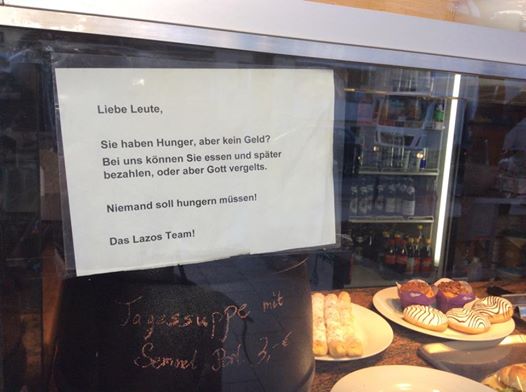 Liebe Leute,
Sie haben Hunger, aber kein Geld?
Bei uns können Sie essen und später
bezahlen, oder aber Gott vergelts.
Niemand soll hungern müssen!
Das Lazos Team!
Tagessuppe mit
Semmel Port 3,-€